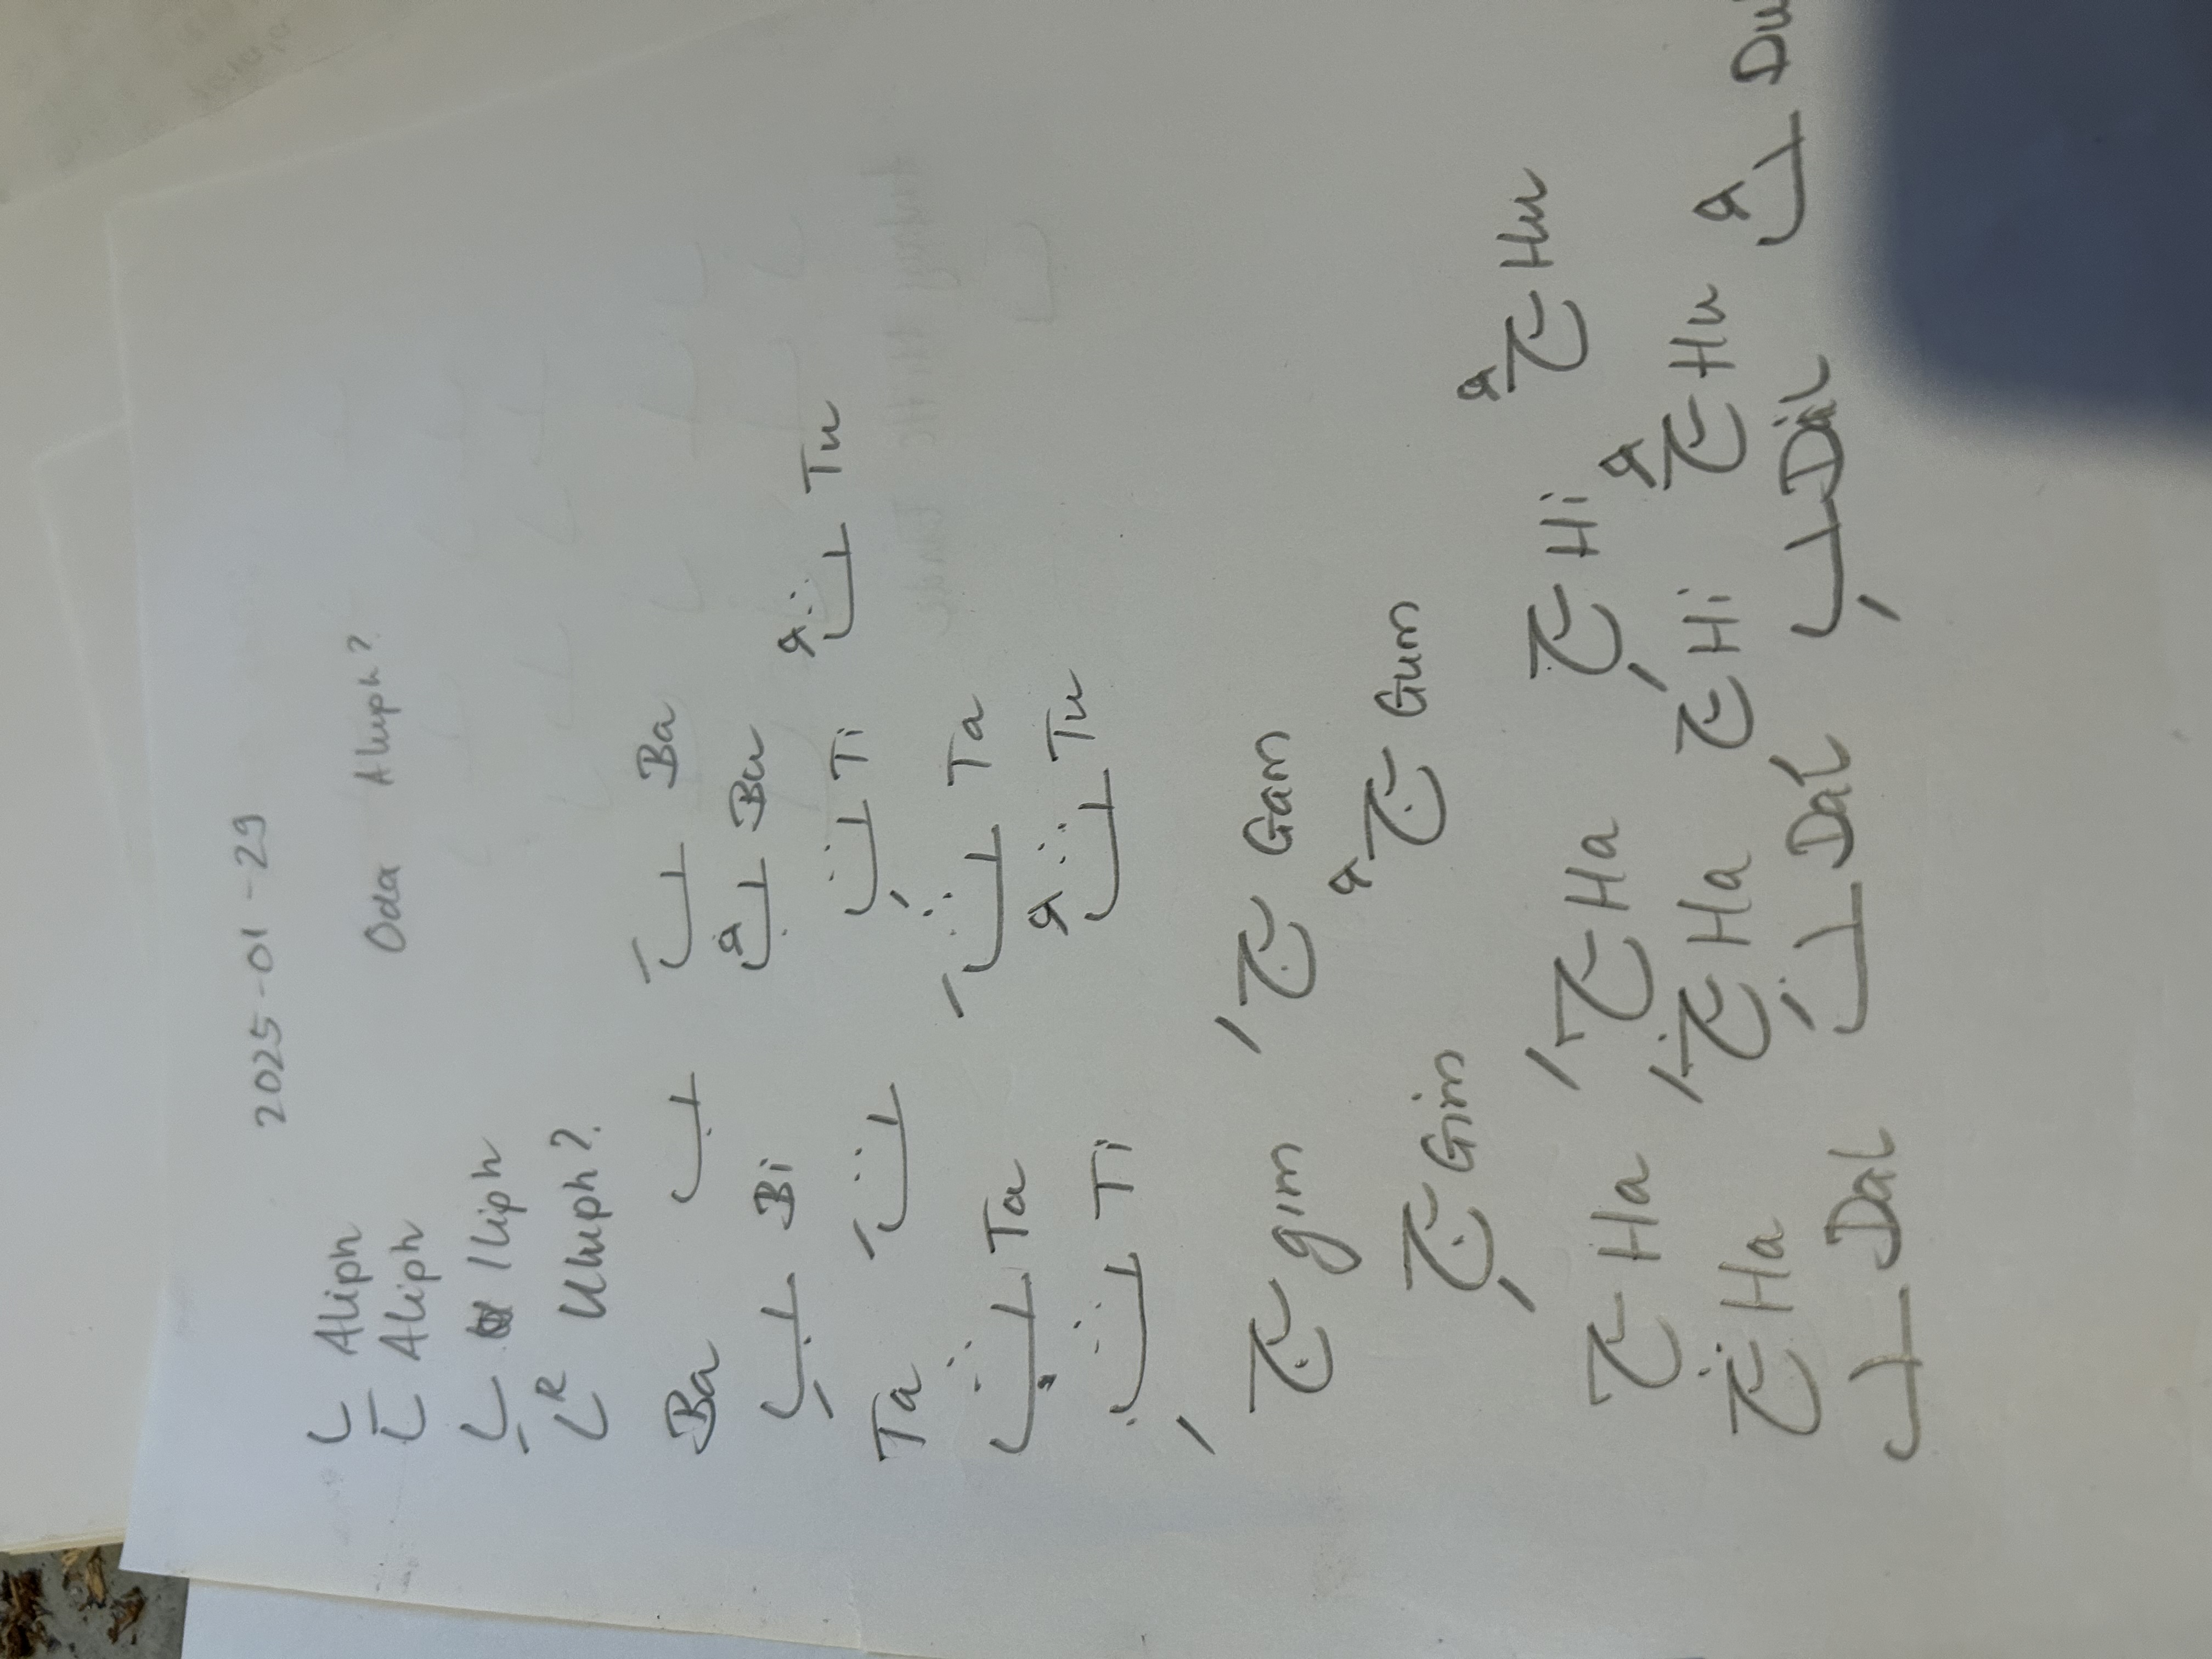 2025-01-29
Aliph
Aliph Oda Aluph?
Iliph
Uluph?
Ba ب بَ Ba
بِ Bi بُ Bu
Ta تَ تِ Ti ثُ Tu
Ta ثَ Ta
Ti ثُ Tu
ج gim جَ Gam
جِ Gim جُ Gum
ح Ha حَ Ha حِ Hi حُ Hu
خ Ha خَ Ha Hi Hu
Dal Dal Dil